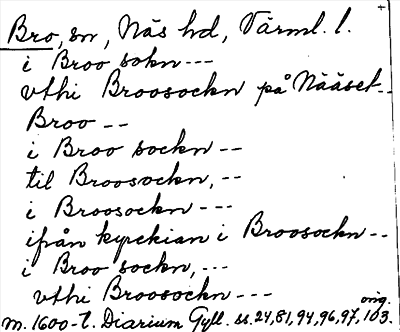 Bro, sn, Näs hd, Värml. l.
i Broo sokn ---
vthi Broosockn på Nääset --
Broo --
i Broo sockn --
til Broosockn, --
i Broosockn ---
ifrån kyrckian i Broosockn --
i Broo sockn, ---
vthi Broosockn ---
orig.
m. 1600-t. Diarium Gyll. ss. 24, 81, 94, 96, 97, 103.